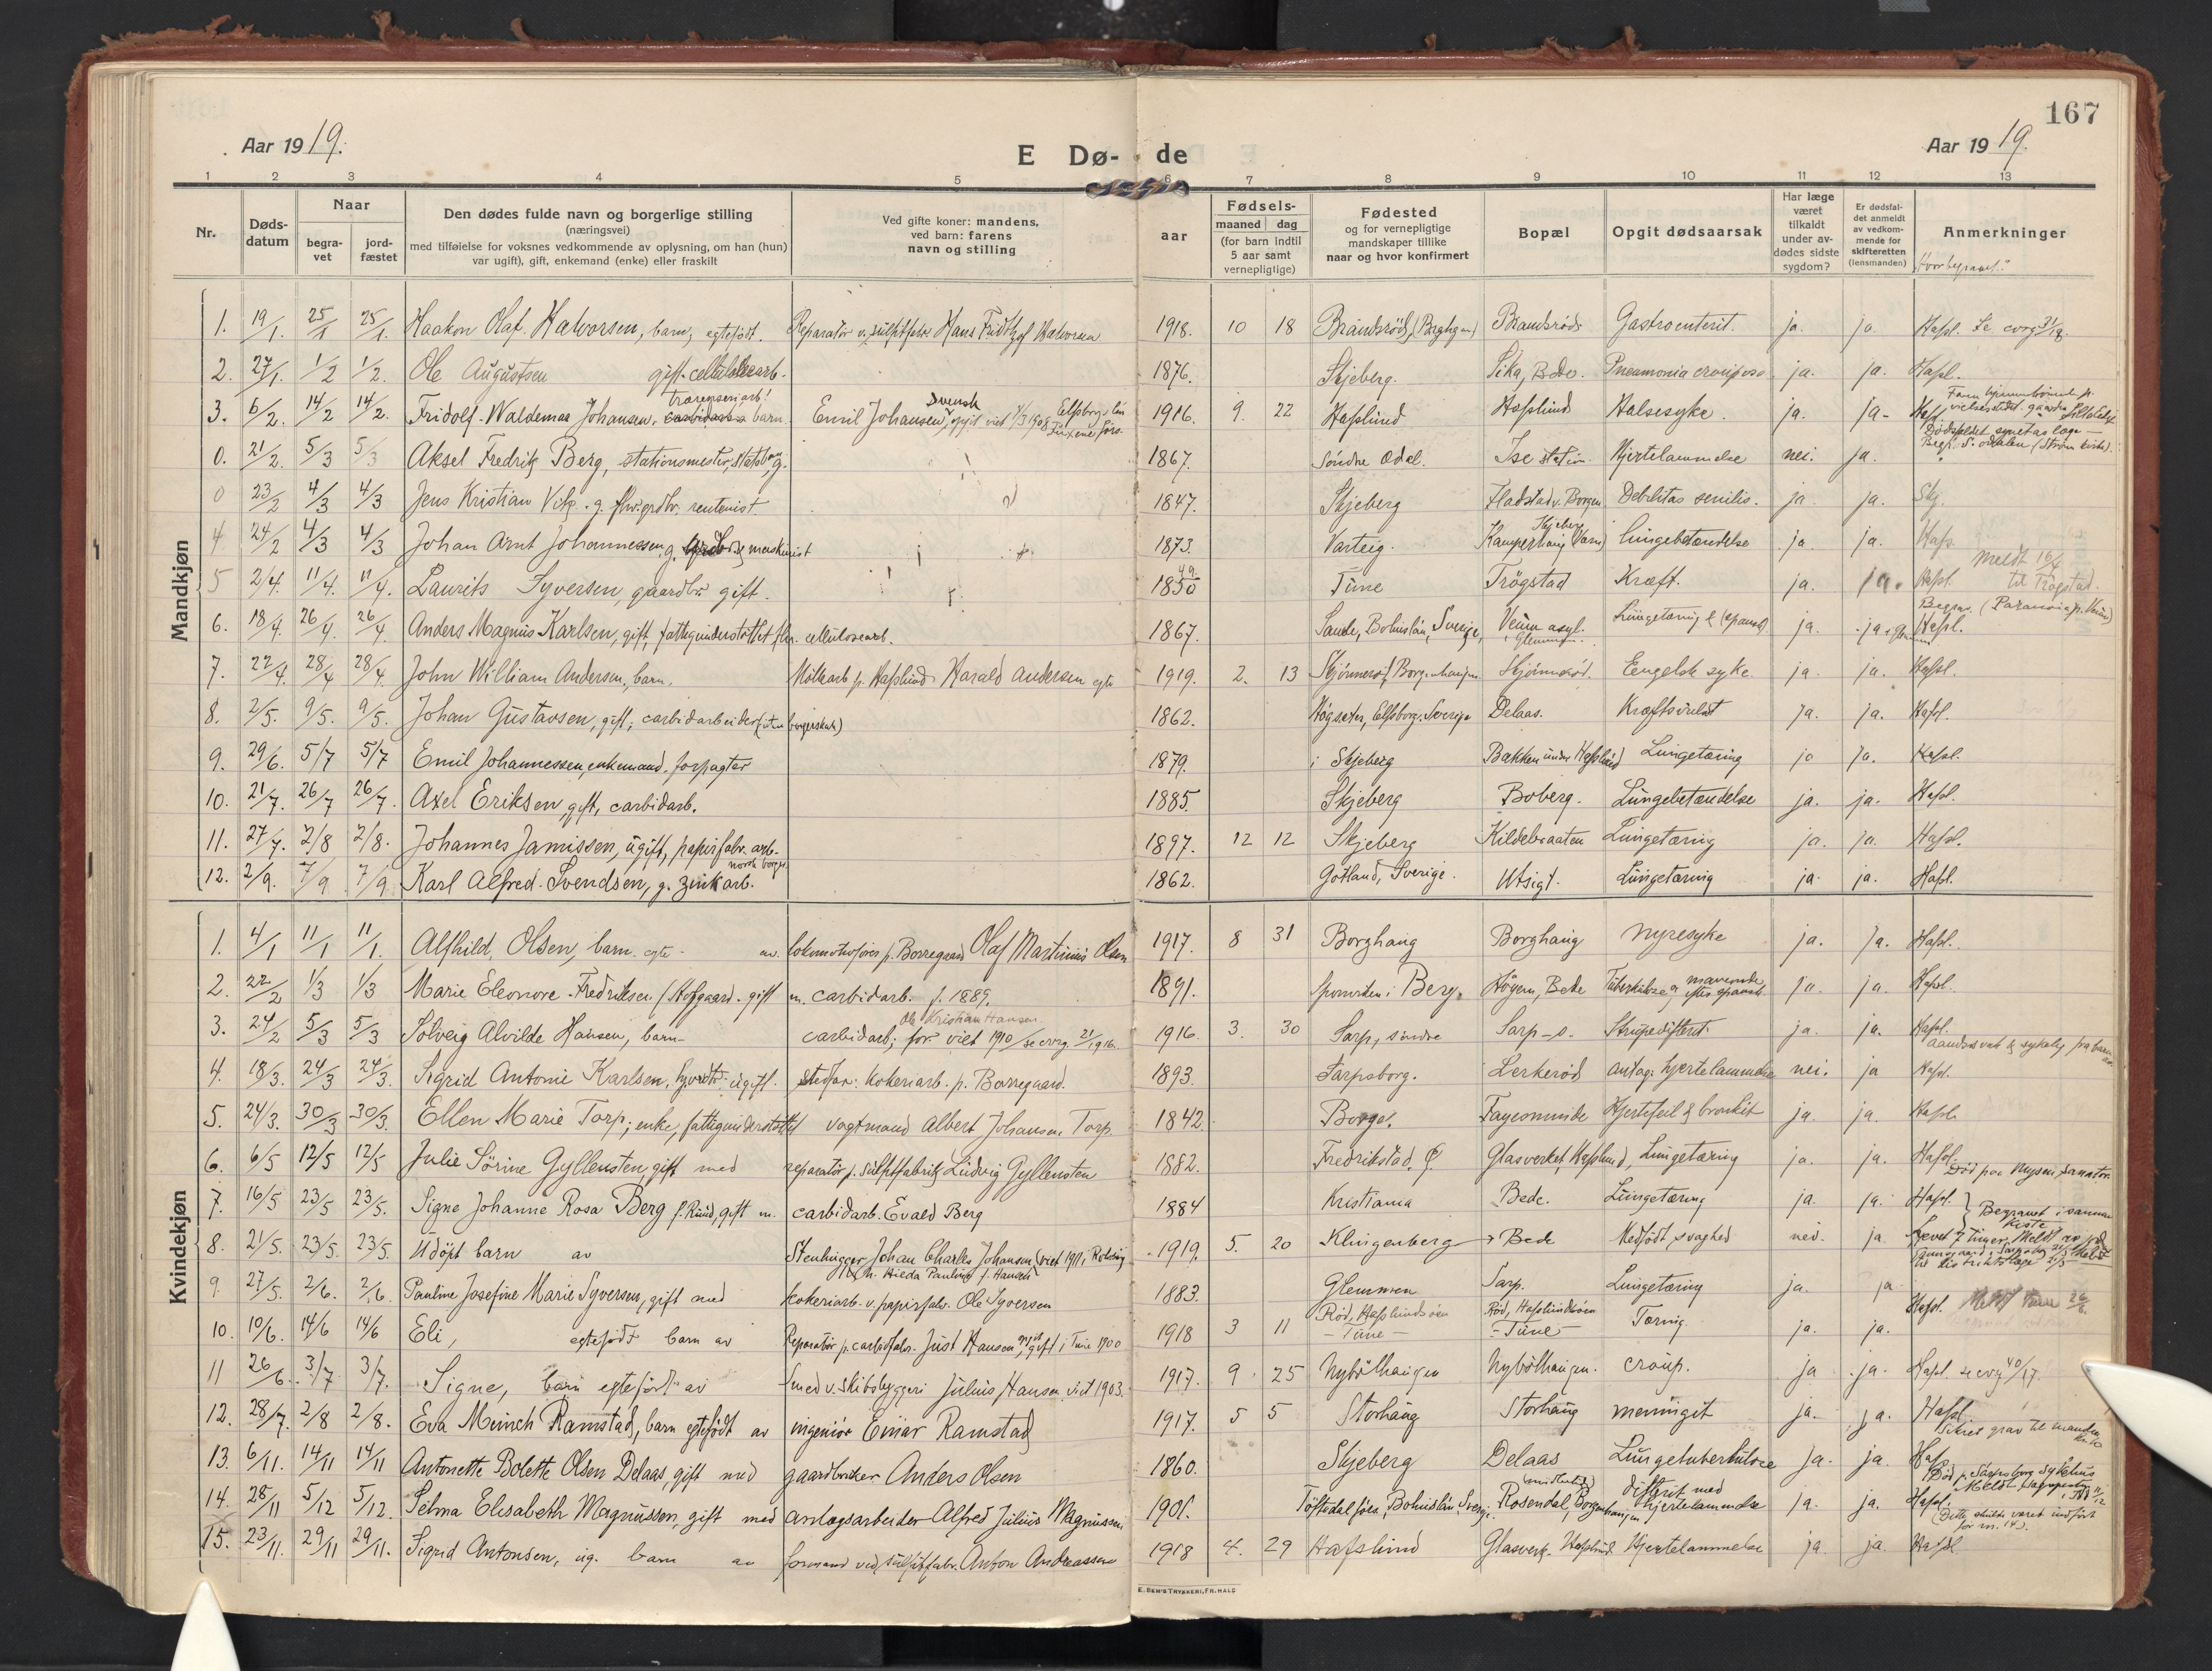 167
Aar 1919.
E Dø- de
Aar 1919.
1 2 3 4 5 6 7 8 9 10 11 12 13
Nr.
Døds-
datum
Naar
begra-
vet
jord-
fæstet
Den dødes fulde navn og borgerlige stilling
(næringsvei)
med tilføielse for voksnes vedkommende av oplysning, om han (hun)
var ugift), gift, enkemand (enke) eller fraskilt
Ved gifte koner: mandens,
ved barn: farens
navn og stilling
Fødsels-
aar
maaned dag
(for barn indtil
5 aar samt
vernepligtige)
Fødested
og for vernepligtige
mandskaper tillike
naar og hvor konfirmert
Bopæl
Opgit dødsaarsak
Har læge
været
tilkaldt
under av-
dødes sidste
sygdom?
Er dødsfal-
det anmeldt
av vedkom-
mende for
skifteretten
(lensmanden)
Anmerkninger
Hvor begravet?
Mandkjøn
1. 19/1. 25/1 25/1. Haakon Olaf Halvorsen, barn, egtefødt. Reparatør v. sulfitfabr. Hans Fridtjof Halvorsen 1918. 10 18 Brandsrød, (Borghgn) Brandsrød Gastroenterit. ja. ja Hafsl. Se 31/18
2. 27/1. 1/2 1/2. Ole Augustsen gift cellulosearb. 1876. Skjeberg. Sika, Bede. Pneumonia crouposa ja. ja. Hafsl.
3. 6/2. 14/2 14/2. Fridolf Waldemar Johansen, barn Emil Johansen, svensk 1916 9. 22 Hafslund Hafslund Halsesyke. ja. ja-
0. 21/2. 5/3 5/3 Aksel Fredrik Berg, stationsmester, statsban. g. 1867. Søndre Odal. Ise station Hjertelammelse nei. ja. Begr. S. Odalen (Strøm kirke).
0 23/2 4/3 4/3 Jens Kristian Vik. g. rentenist. 1847. Skjeberg Fladstad v. Borgen Debilitas senilis. ja ja. Skj.
4 24/2 4/3 4/3 Johan Arnt Johannessen, g. maskinist 1873. Varteig. Kamperhaug Skjeberg lungebetændelse ja ja. Hafs
5 2/4. 11/4. 11/4. Laurits Syversen, gaardbr. gift. 1850 49 Tune Trøgstad Kræft. ja. ja. Hafsl. Meldt 16/4 til Trøgstad.
6. 18/4. 26/4. 26/4. Anders Magnus Karlsen, gift, fattigunderstøttet fhv. cellulosearb. 1867. Sande, Bohuslän, Sverige, Veum asyl. Glemmen Lungetæring & (spansk) ja. ja i Glemmen Hafsl. Begrav. (Paranoia p. Veum)
7. 22/4. 28/4 28/4. John William Andersen, barn. Møllearb p. Hafslund Harald Andersen egte 1919. 2. 13 Skjønnerød, Borgenhaugen Skjønnerød. Eengelsk syke ja ja. Hafsl.
8. 2/5. 9/5. 9/5. Johan Gustavsen, gift, carbidarbeider (uten borgerskab) 1862. Högsäter, Elfsborg. Sverige Delaas. Kræftsvulst ja. ja. Hafsl.
9. 29/6. 5/7 5/7 Emil Johannessen, enkemand. forpagter 1879. i Skjeberg Bakken under Hafslund Lungetæring ja ja. Hafsl.
10. 21/7. 26/7 26/7. Axel Eriksen, gift, carbidarb. 1885. Skjeberg Boberg. Lungebetændelse ja. ja. Hafsl.
11. 27/7. 2/8 2/8. Johannes Jamissen, ugift, papirfabr. arb. 1897. 12 12 Skjeberg Kildebraaten Lungetæring ja. ja. Hafsl.
12. 2/9. 7/9 7/9. Karl Alfred Svendsen, g. zinkarb. norsk borger 1862. Gotland, Sverige. Utsigt. Lungetæring ja ja. Hafsl.
Kvindekjøn
1. 4/1 11/1 11/1. Alfhild Olsen, barn egte av lokomotivfører p. Borregaard Olaf Martinius Olsen 1917. 8 31 Borghaug Borghaug Nyresyke ja. ja. Hafsl.
2. 22/2 1/3 1/3 Marie Eleonore Fredriksen gift m. carbidarb. f. 1889. 1891. Sponviken i Berg. Høgem, Bede ja. ja. Hafsl.
3. 24/2 5/3 5/3 Solveig Alvilde Hansen, barn carbidarb; Ole Kristian Hansen viet 1910 1916 3. 30 Sarp, søndre Sarp-s. Strupedifterit. ja. ja. Hafsl.
4. 18/3. 24/3 24/3. Sigrid Antonie Karlsen, ugift. stedfar: kokeriarb. p. Borregaard. 1893. Sarpsborg. Lerkerød antag. hjertelammelse nei. ja Hafsl.
5. 24/3. 30/3 30/3. Ellen Marie Torp; enke, fattigunderstøttet vagtmand Albert Johansen Torp 1842. Borge. Fayesminde Hjertefeil & bronkit ja. ja. Hafsl.
6. 6/5 12/5 12/5 Julie Sørine Gyllensten, gift med reparatør p. sulfitfabrik Ludvig Gyllensten 1882. Fredrikstad, Ø. Glasverket, Hafslund, Lungetæring ja. ja. Hafsl. Død paa Mysen sanator.
7. 16/5 23/5 23/5. Signe Johanne Rosa Berg f. Ruud, gift m. carbidarb. Evald Berg 1884 Kristiania Bede. Lungetæring ja. ja. Hafsl.
8. 21/5. 23/5. 23/5. Udøpt barn av Stenhugger Johan Charles Johansen (viet 1911, h. Hilda Pauline f. Hansen 1919. 5. 20 Klingenberg Bede Medfødt svaghed nei. ja. Begravet i samme kiste Levet 7 timer.
9. 27/5. 2/6. 2/6. Pauline Josefine Marie Syversen, gift med kokeriarb. v. papirfabr. Ole Syversen 1883. Glemmen Sarp. Lungetæring ja. ja
10. 10/6. 14/6 14/6 Eli, egtefødt barn av Reparatør p. carbidfabr. Just Hansen gift i Tune 1900 1918 3 11 Rød, Hafslundsøen -Tune- Rød, Hafslundsøen -Tune- Tæring. ja. ja. Hafsl. Meldt Tune 26/6
11 26/6. 3/7 3/7. Signe, barn egtefødt av smed v. skibsbyggeri Julius Hansen viet 1903. 1917. 9 25 Nybølhaugen Nybølhaugen. croup. ja ja. Hafsl. 40/17
12. 28/7. 2/8 2/8. Eva Munch Ramstad, barn egtefødt av ingeniør Einar Ramstad 1917. 5 5 Storhaug Storhaug meningit ja. ja. Hafsl.
13. 6/11. 14/11 14/11 Antonette Bolette Olsen Delaas, gift med gaardbruker Anders Olsen 1860. Skjeberg Delaas Lungetuberkulose ja. ja. Hafs. Sikret grav til manden
14. 28/11 5/12 5/12. Selma Elisabeth Magnussen, gift med anlægsarbeider Alfred Julius Magnussen 1901. Töftedal, Bohuslän, Sverige. Rosendal, Borgenhaugen (midlertid) difterit med hjertelammelse ja. ja. Hafsl. Død p. Sarpsborg sykehus
15. 23/11. 29/11 29/11. Sigrid Antonsen, ug. barn av formand ved sulfitfabr. Anton Andreassen 1918 4. 29 Hafslund Glasverk. Hafslund Hjertelammelse ja. ja. Hafsl (Dette skulde været indført før nr. 14).
E. SEM'S TRYKKERI, FR.HALD